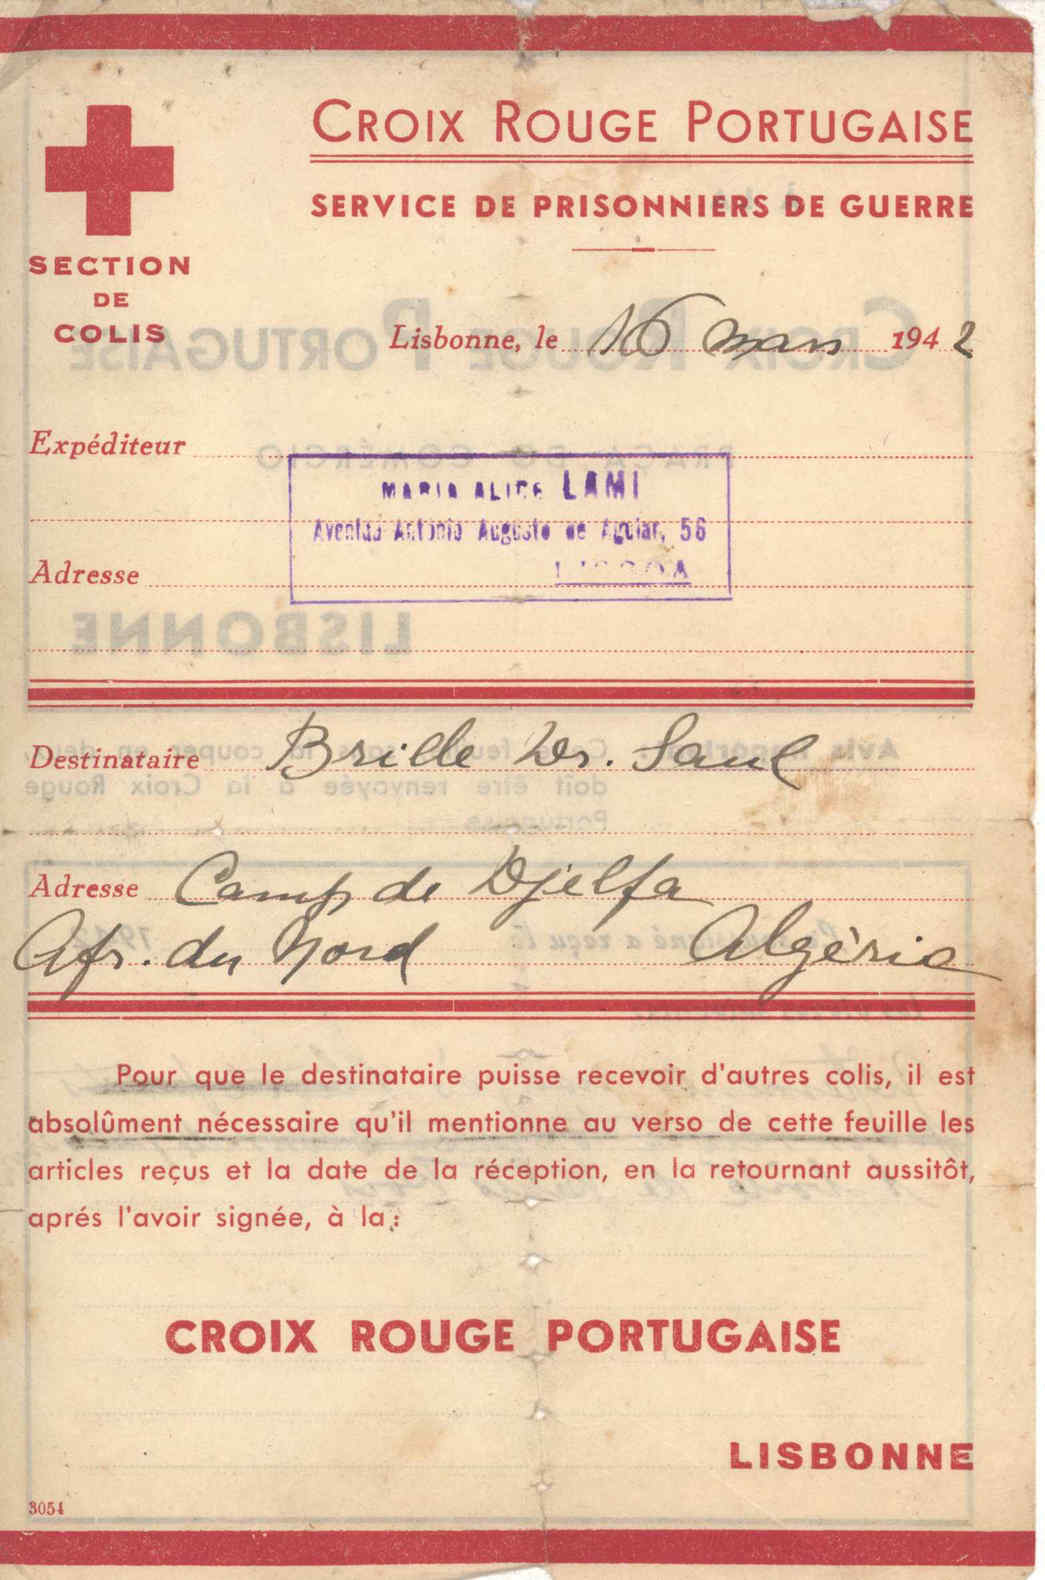 CROIX ROUGE PORTUGAISE
SERVICE DE PRISONNIERS DE GUERRE
SECTION
DE
COLIS
Lisbonne, le 16 mars 1942
Expéditeur
MARIA ALICE LAMI
Avenida António Augusto de Aguiar, 56
LISBOA
Adresse
Destinataire Brille Dr. Saul
Adresse Camp de Djelfa
Afr. du Nord Algérie
Pour que le destinataire puisse recevoir d'autres colis, il est
absolûment nécessaire qu'il mentionne au verso de cette feuille les
articles reçus et la date de la réception, en la retournant aussitôt,
aprés l'avoir signée, à la:
CROIX ROUGE PORTUGAISE
LISBONNE
3054